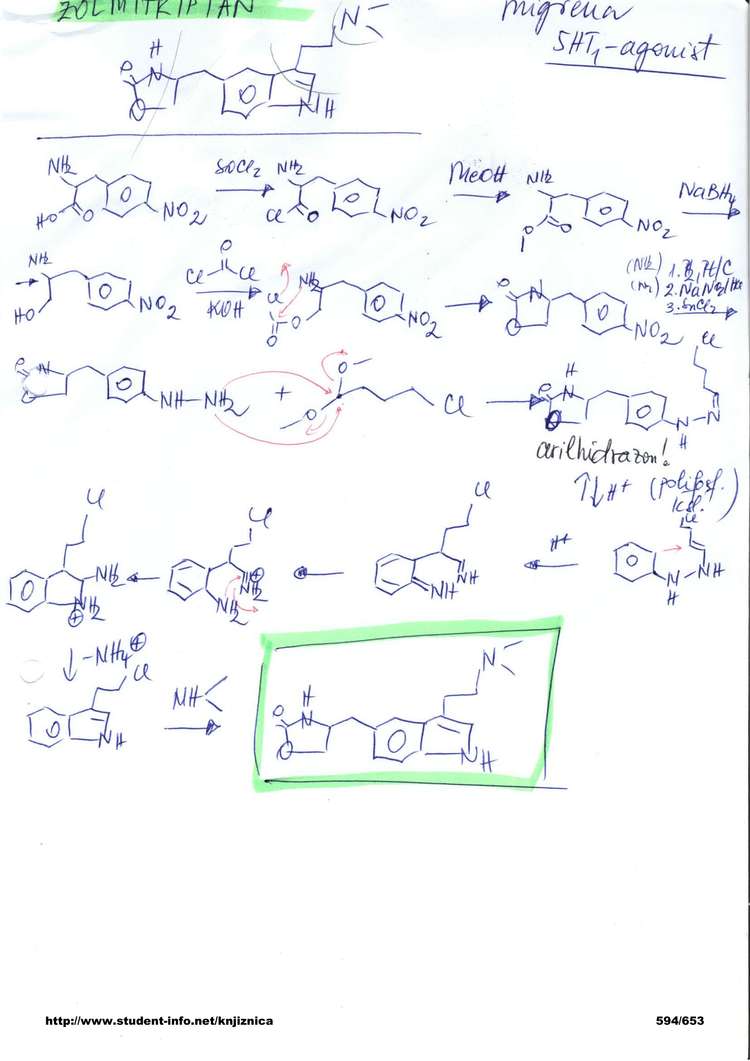 ZOLMITRIPTAN
migrena
5HT₁-agonist
N
H
N
O
O
NH
NH₂
HO
O
NO₂
SOCl₂
NH₂
Cl
O
NO₂
MeOH
NH₂
O
O
NO₂
NaBH₄
NH₂
HO
NO₂
O
Cl
Cl
KOH
NH₂
Cl
O
O
NO₂
O
N
O
NO₂
(NH₂) 1. H₂, Pt/C
2. NaNO₂/HCl
3. SnCl₂
O
N
O
NH-NH₂
+
O
O
Cl
H
O
N
O
N
H
N
Cl
arilhidrazon!
H+ (polifosf. ksl.)
Cl
NH₂
NH₂
+
Cl
NH₂
NH₂
+
Cl
NH
NH
H+
Cl
N
H
NH
-NH₄+
Cl
N
H
NH
N
H
O
N
O
N
H
http://www.student-info.net/knjiznica
594/653